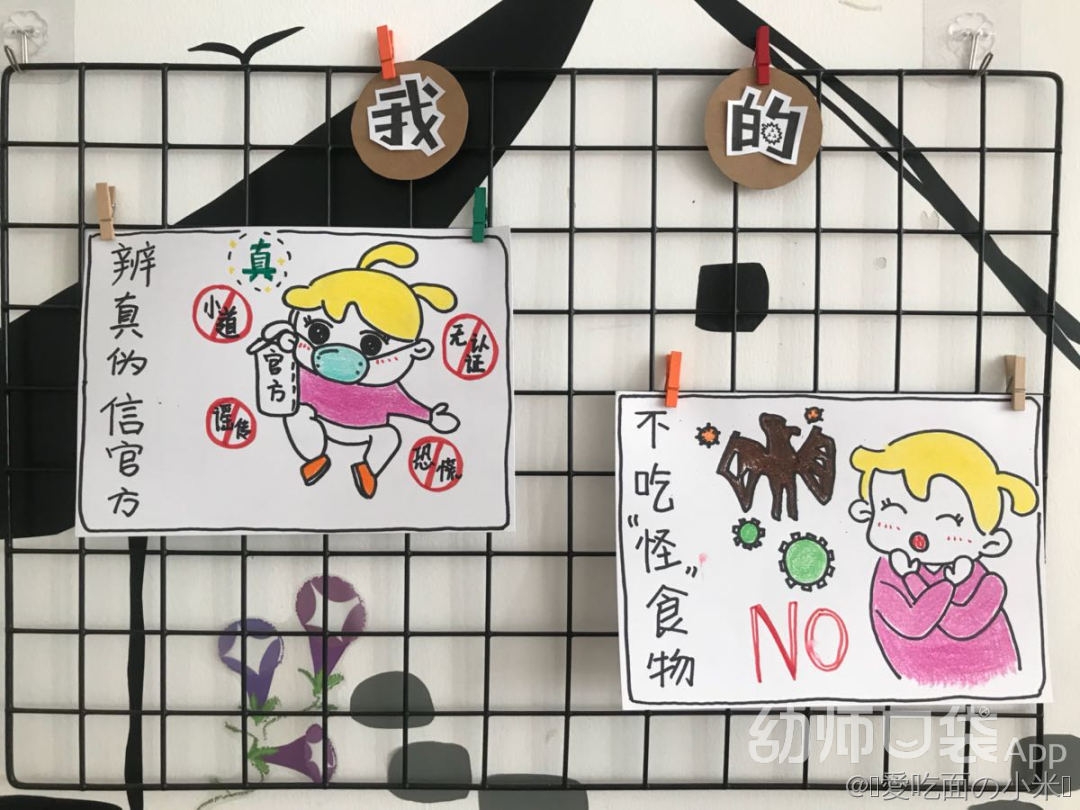 我的
辨真伪信官方
真
小道
无认证
官方
谣传
恐慌
不吃"怪"食物
NO
幼师口袋App
@愛吃面の小米